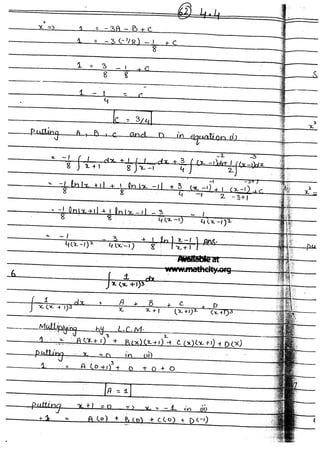 62 4.4
x² ⇒ 1 = -3A - B + C
1 = -3(-1/8) - 1/8 + C
1 = 3/8 - 1/8 + C
1 - 1/4 = C
C = 3/4
Putting A, B, C and D in equation (i)
= -1/8 ∫ 1/x+1 dx + 1/8 ∫ 1/x-1 dx + 3/4 ∫ (x-1)⁻² dx + 1/2 ∫ (x-1)⁻³ dx
= -1/8 ln|x+1| + 1/8 ln|x-1| + 3/4 (x-1)⁻¹/-1 + 1/2 (x-1)⁻³⁺¹/-3+1 + C
= -1/8 ln|x+1| + 1/8 ln|x-1| - 3/4(x-1) - 1/4(x-1)²
= -1/4(x-1)² - 3/4(x-1) + 1/8 ln|x-1/x+1| Ans.
Available at
www.mathcity.org
6 ∫ 1/x(x+1)³ dx
∫ 1/x(x+1)³ dx = A/x + B/x+1 + C/(x+1)² + D/(x+1)³
Multiplying by L.C.M.
1 = A(x+1)³ + B(x)(x+1)² + C(x)(x+1) + D(x)
putting x = 0 in (ii)
1 = A(0+1)³ + 0 + 0 + 0
A = 1
putting x+1 = 0 ⇒ x = -1 in (ii)
1 = A(0) + B(0) + C(0) + D(-1)